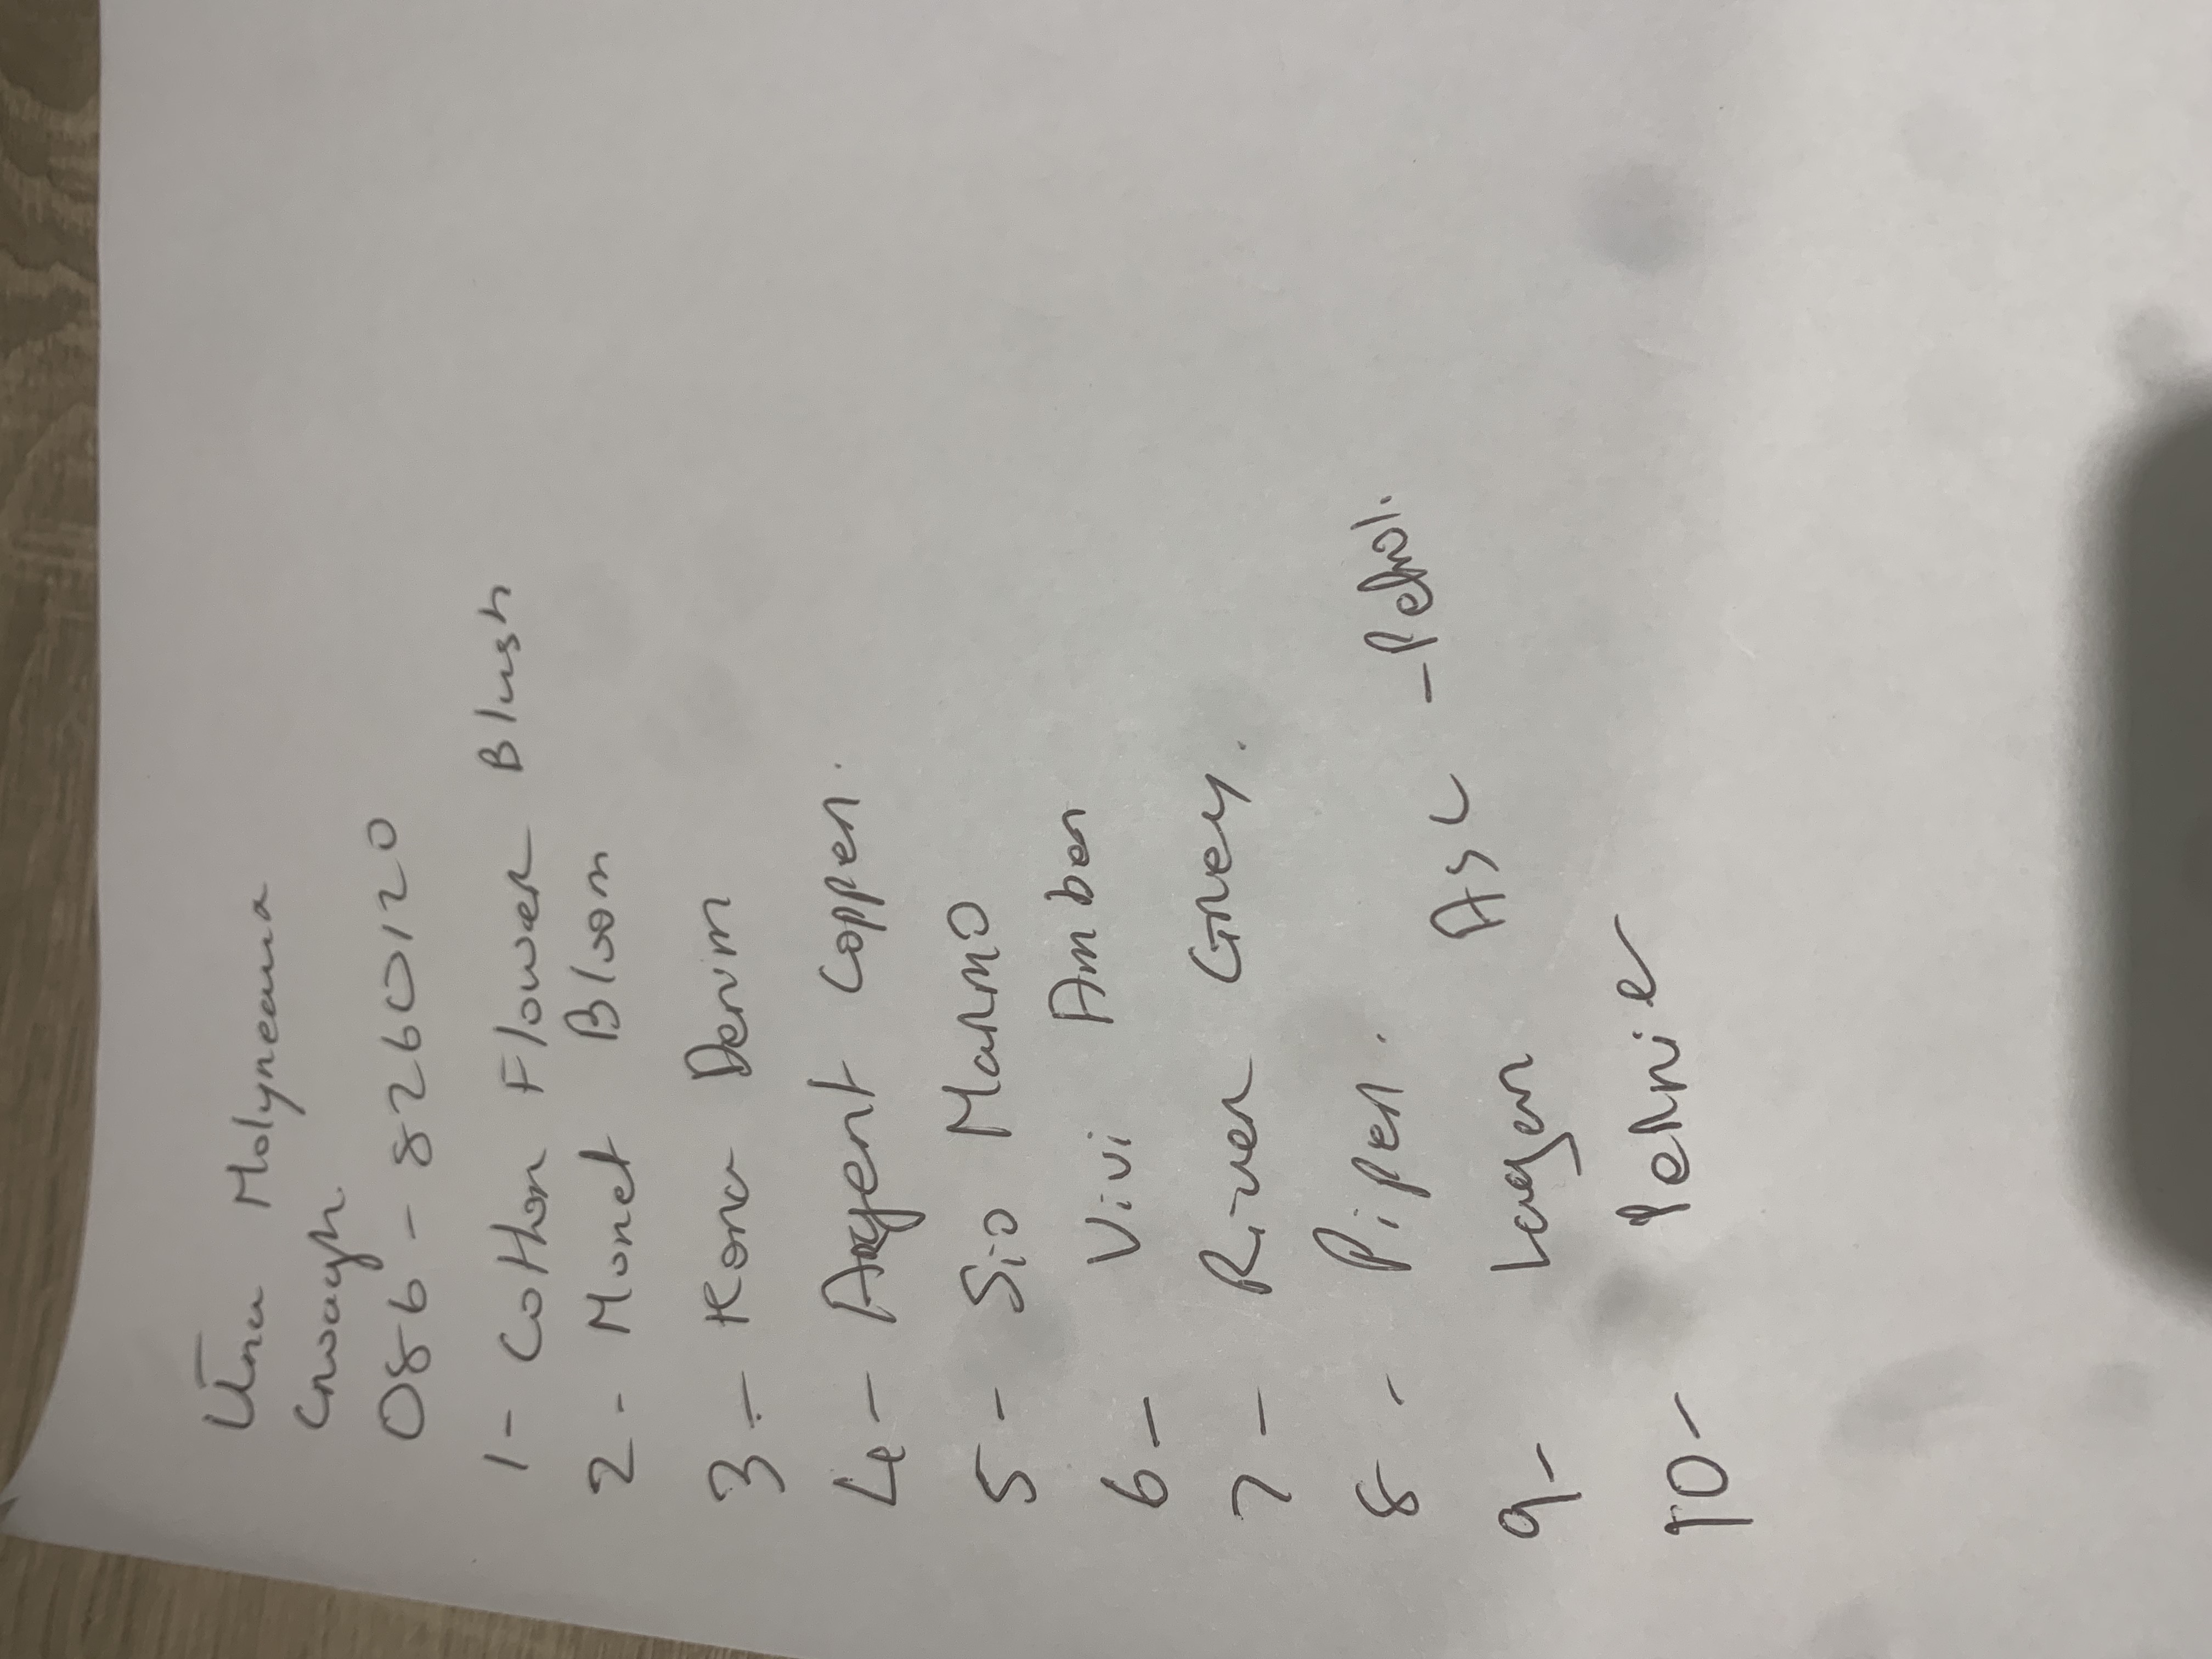 Úna Molyneaux
Croagh
086-8260120
1- Cotton Flower Blush
2- Monet Bloom
3- Kona Denim
4- Argent Copper.
5- Sio Marmo
6- Vivi Amber
7- River Grey.
8- Piper.
9- ASC - Petrol.
10-